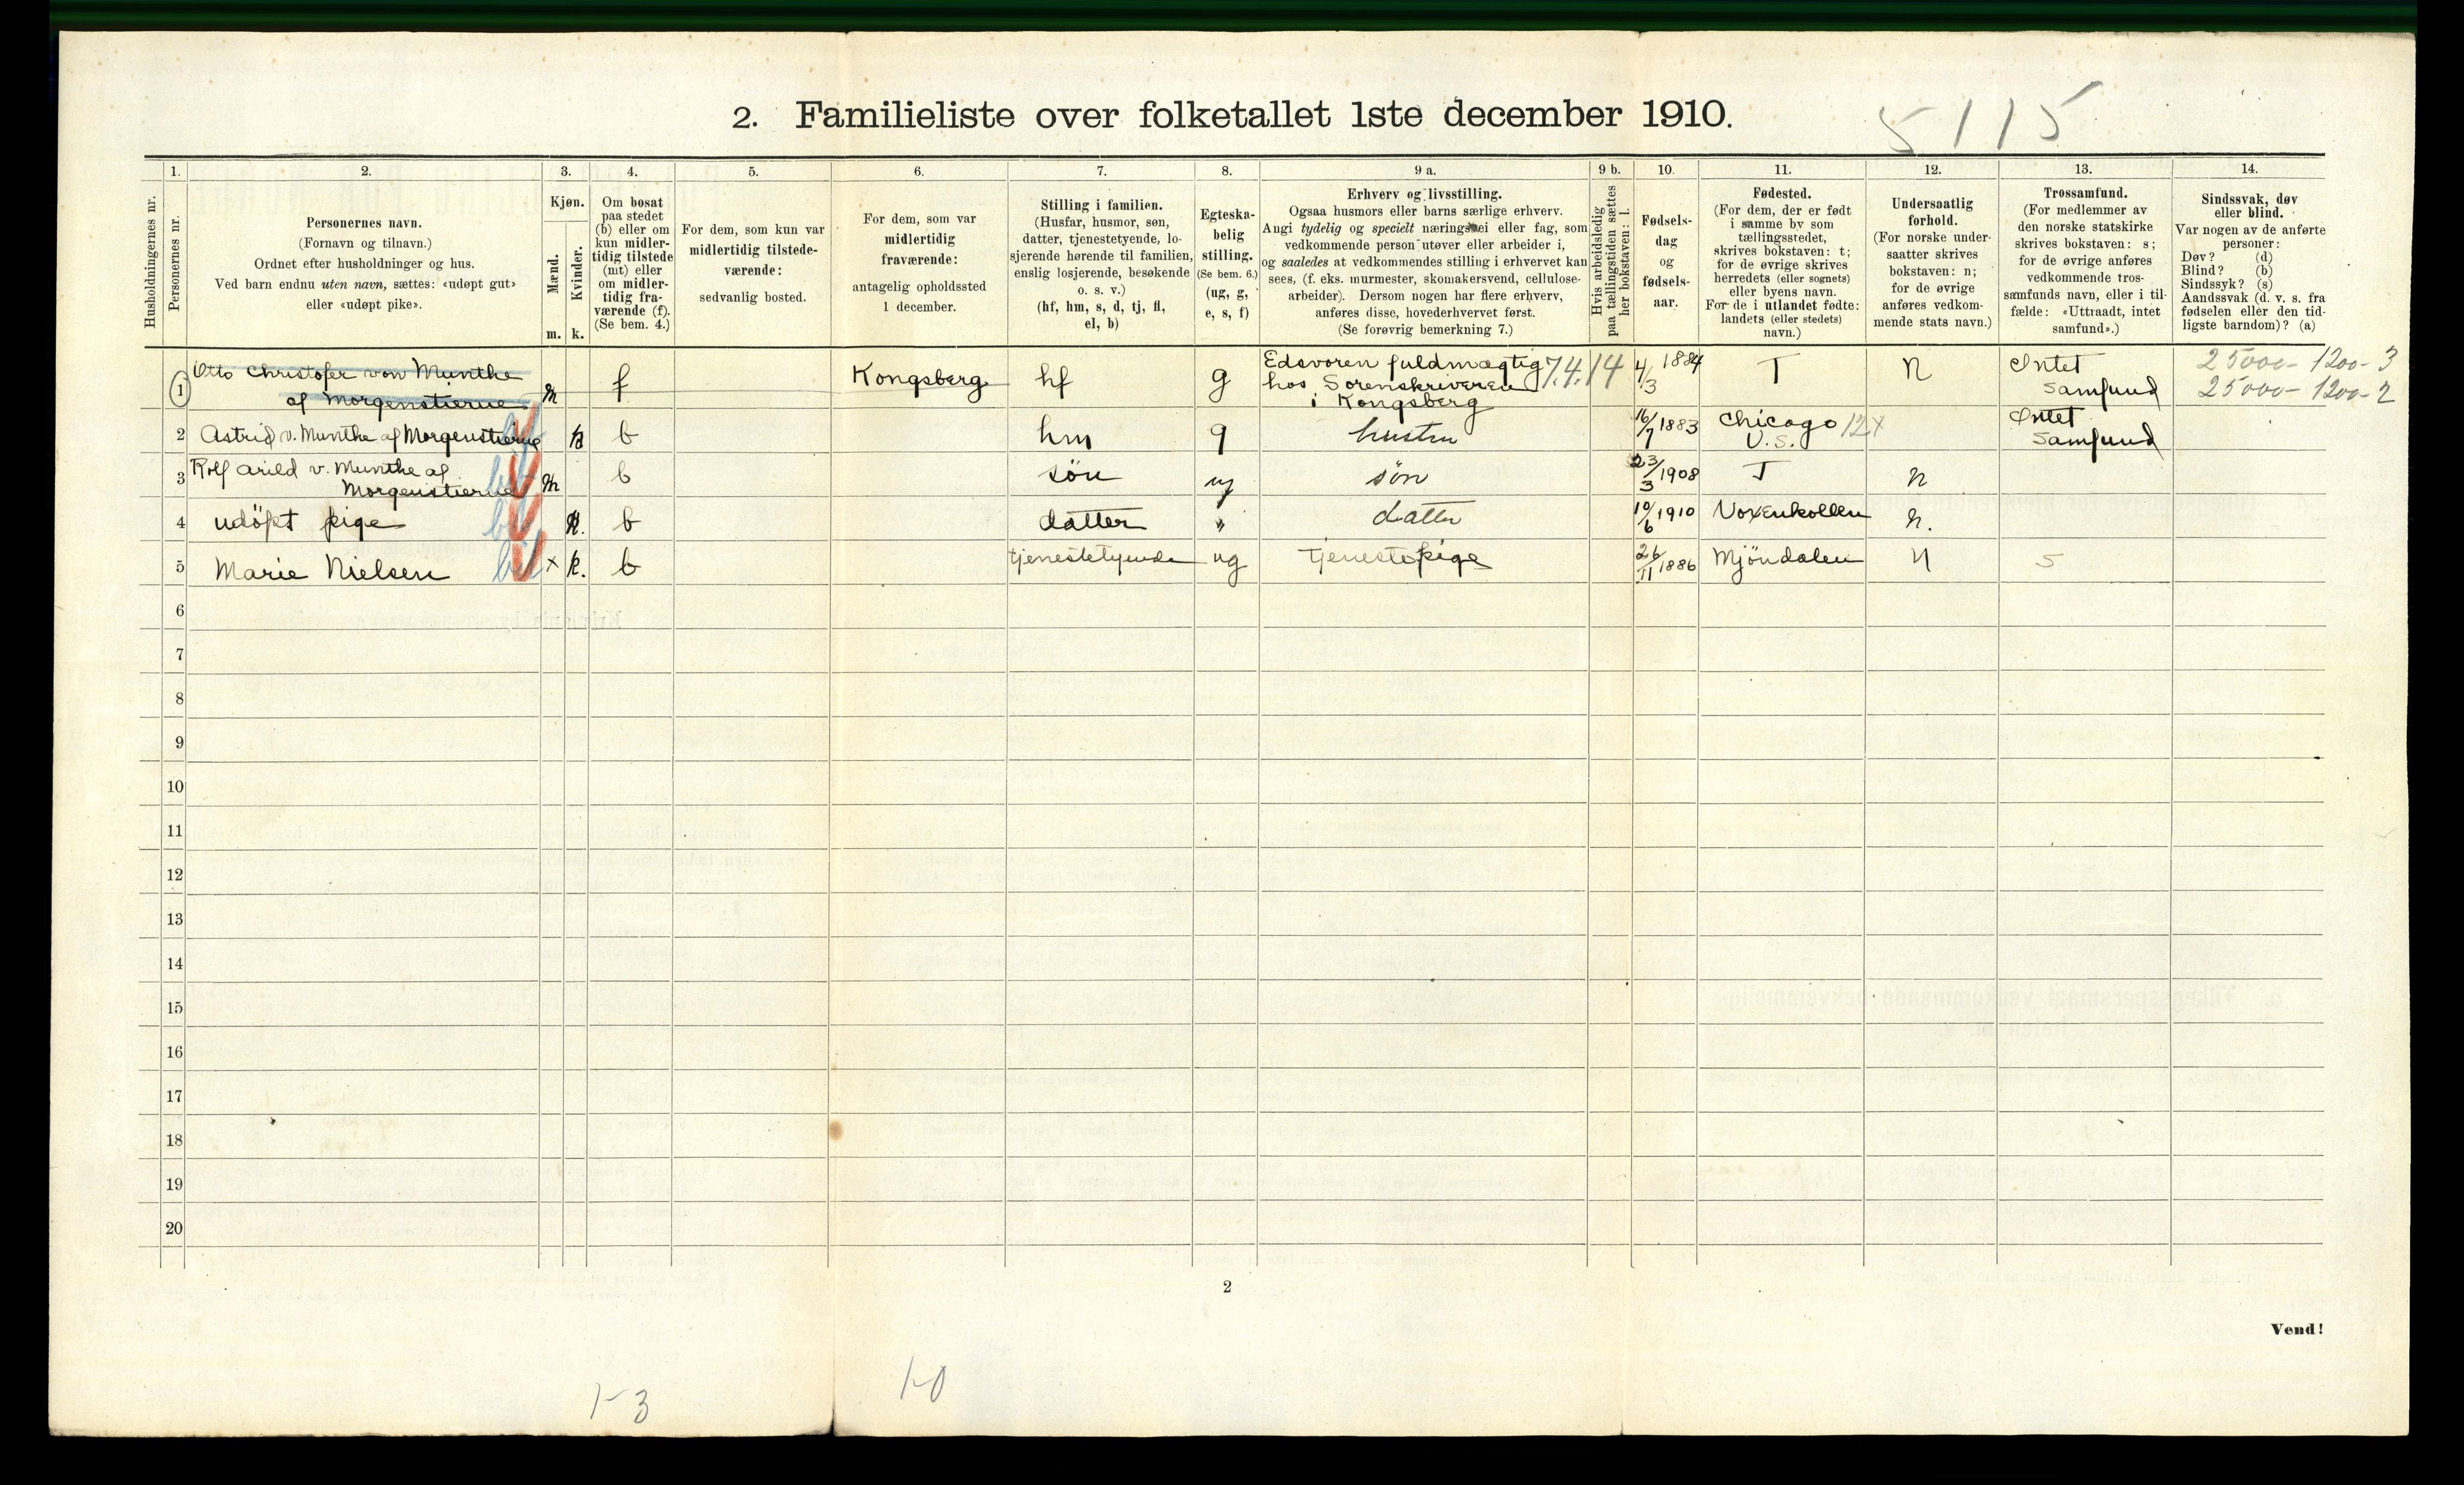 2. Familieliste over folketallet 1ste december 1910.
5115
Husholdningernes nr.
1.
Personernes nr.
2.
Personernes navn.
(Fornavn og tilnavn.)
Ordnet efter husholdninger og hus.
Ved barn endnu uten navn, sættes: «udøpt gut»
eller «udøpt pike».
3.
Kjøn.
Mænd.
Kvinder.
m. k.
4.
Om bosat
paa stedet
(b) eller om
kun midler-
tidig tilstede
(mt) eller
om midler-
tidig fra-
værende (f).
(Se bem. 4.)
5.
For dem, som kun var
midlertidig tilstede-
værende:
sedvanlig bosted.
6.
For dem, som var
midlertidig
fraværende:
antagelig opholdssted
1 december.
7.
Stilling i familien.
(Husfar, husmor, søn,
datter, tjenestetyende, lo-
sjerende hørende til familien,
enslig losjerende, besøkende
o. s. v.)
(hf, hm, s, d, tj, fl,
el, b)
8.
Egteska-
belig
stilling.
(Se bem. 6.)
(ug, g,
e, s, f)
9 a.
Erhverv og livsstilling.
Ogsaa husmors eller barns særlige erhverv.
Angi tydelig og specielt næringsvei eller fag, som
vedkommende person utøver eller arbeider i,
og saaledes at vedkommendes stilling i erhvervet kan
sees, (f. eks. murmester, skomakersvend, cellulose-
arbeider). Dersom nogen har flere erhverv,
anføres disse, hovederhvervet først.
(Se forøvrig bemerkning 7.)
9 b.
Hvis arbeidsledig
paa tællingstiden sættes
her bokstaven: l.
10.
Fødsels-
dag
og
fødsels-
aar.
11.
Fødested.
(For dem, der er født
i samme by som
tællingsstedet,
skrives bokstaven: t;
for de øvrige skrives
herredets (eller sognets)
eller byens navn.
For de i utlandet fødte:
landets (eller stedets)
navn.)
12.
Undersaatlig
forhold.
(For norske under-
saatter skrives
bokstaven: n;
for de øvrige
anføres vedkom-
mende stats navn.)
13.
Trossamfund.
(For medlemmer av
den norske statskirke
skrives bokstaven: s;
for de øvrige anføres
vedkommende tros-
samfunds navn, eller i til-
fælde: «Uttraadt, intet
samfund».)
14.
Sindssvak, døv
eller blind.
Var nogen av de anførte
personer:
Døv? (d)
Blind? (b)
Sindssyk? (s)
Aandssvak (d. v. s. fra
fødselen eller den tid-
ligste barndom)? (a)
1 Otto Christofer von Munthe
af Morgenstierne m f Kongsberg hf g
Edsvoren fuldmægtig 7.4.14
hos Sorenskriveren
i Kongsberg
4/3 1884 T N Intet
samfund
25000- 1200- 3
25000- 1200- 2
2 Astrid v. Munthe af Morgenstierne k b hm g hustru 16/7 1883 Chicago
U.S. N Intet
samfund
3 Rolf Arild v. Munthe af
Morgenstierne m b søn ug søn 23/3 1908 T n
4 udöpt pige k. b datter " datter 10/6 1910 Voxenkollen n.
5 Marie Nielsen × k. b tjenestetyende ug tjenestepige 26/11 1886 Mjöndalen N s
6
7
8
9
10
11
12
13
14
15
16
17
18
19
20
2
Vend!
1-3
1-0